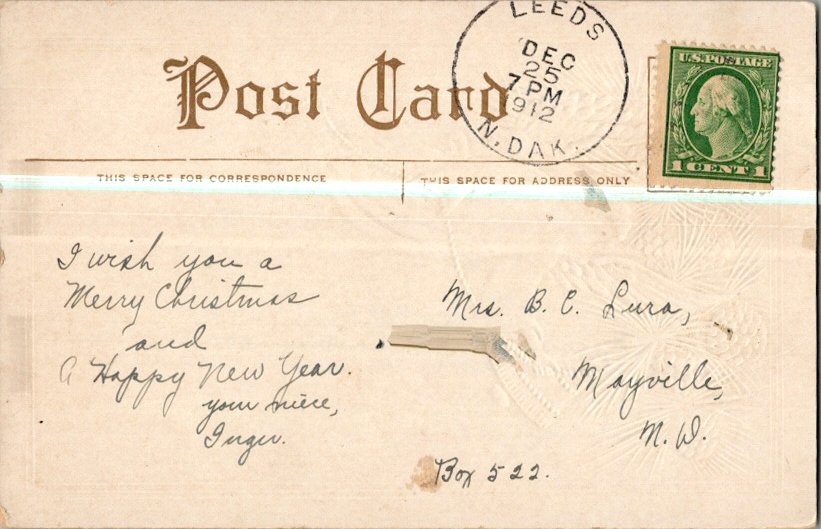 LEEDS
DEC
25
7 PM
1912
N. DAK.
Post Card
U.S. POSTAGE
1 CENT 1
THIS SPACE FOR CORRESPONDENCE
THIS SPACE FOR ADDRESS ONLY
I wish you a
Merry Christmas
and
A Happy New Year.
your niece,
Inger.
Mrs. B. C. Lura,
Mayville,
N. D.
Box 522.